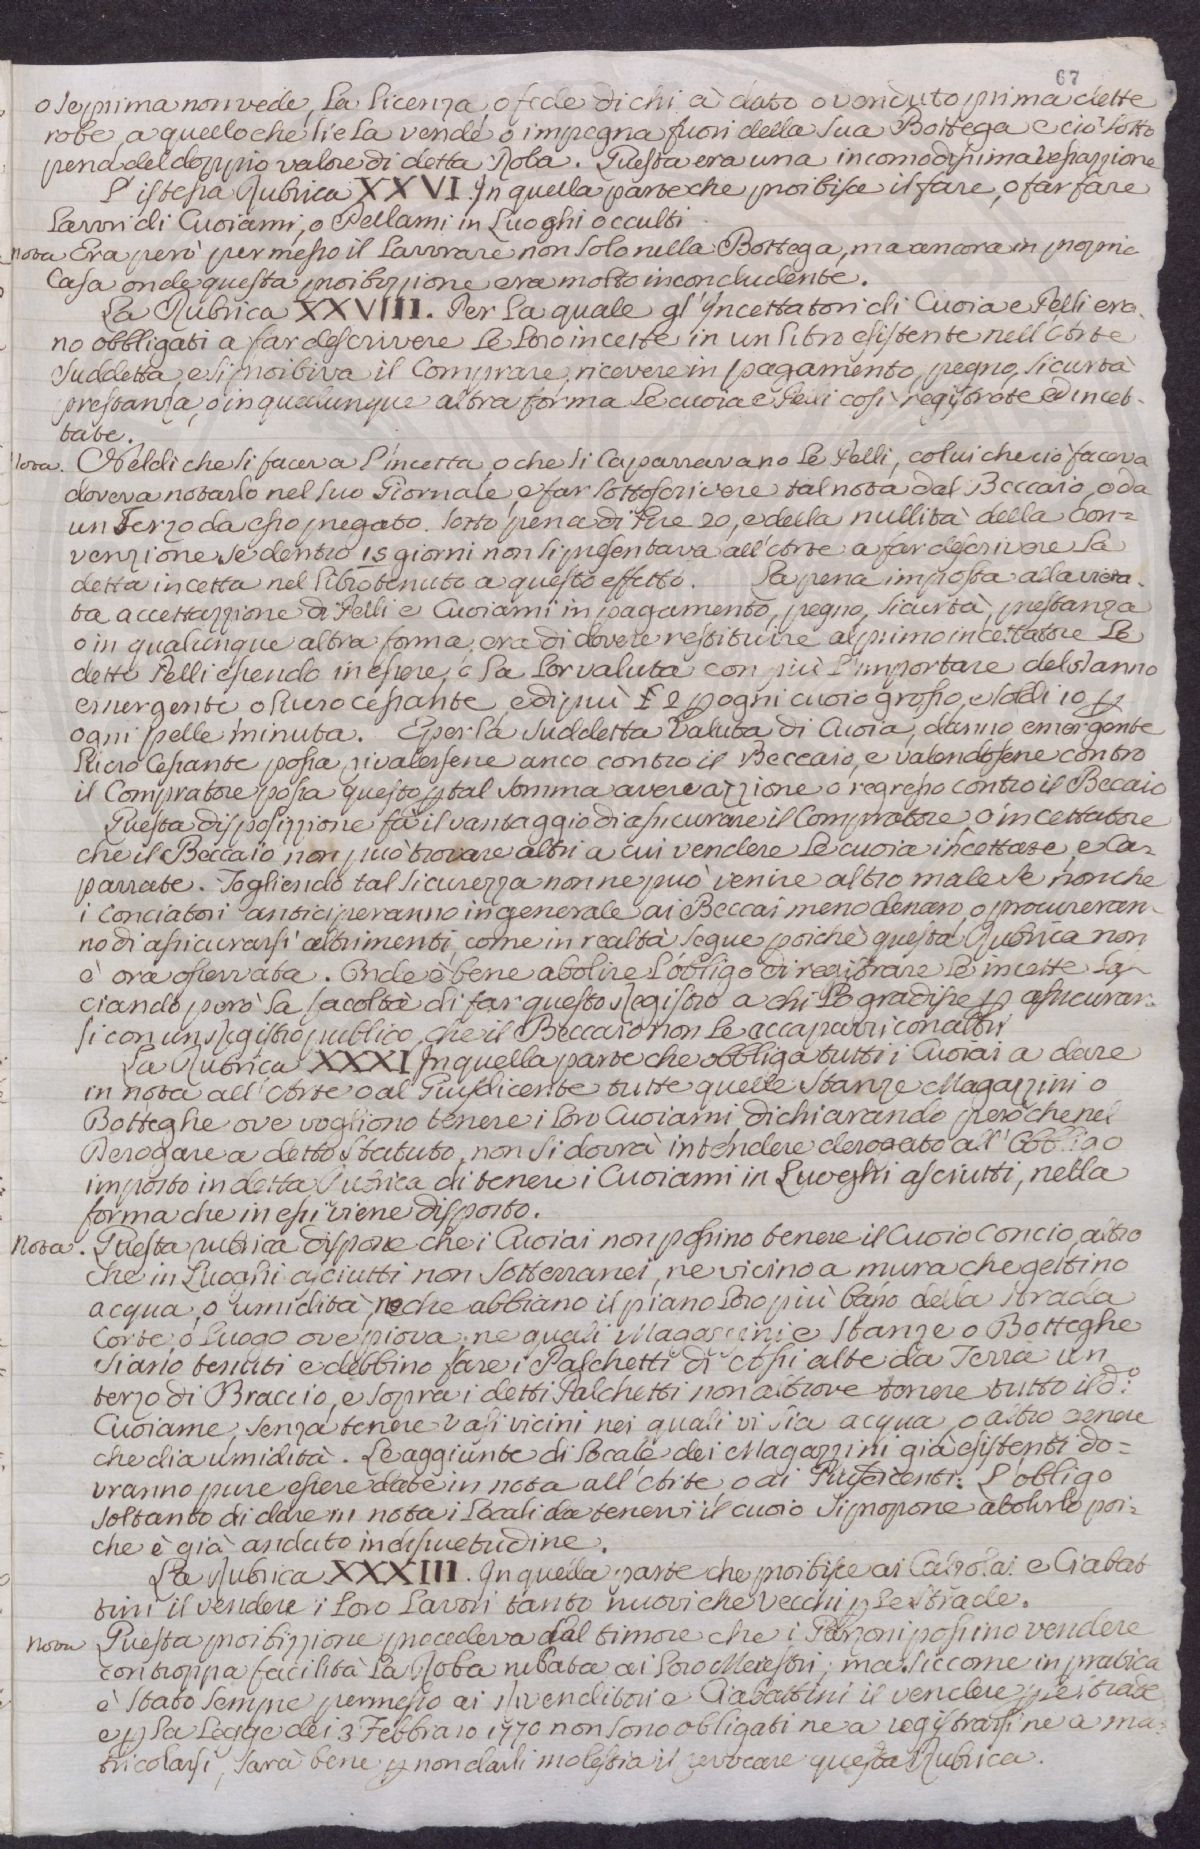 67
o se prima non vede, la licenza, o fede di chi à dato o venduto prima dette
robe, a quello che lie la vende, o impegna fuori della sua Bottega e ciò sotto
pena del doppio valore di detta Roba. Questa era una incomodissima vessazzione
L'istessa Rubrica XXVI. In quella parte che proibisce il fare, o far fare
Lavori di Cuoiami, o Pellami in Luoghi occulti.
Nota Era però permesso il Lavorare non solo nella Bottega, ma ancora in propria
Casa onde questa proibizzione era molto incondudente.
La Rubrica XXVIII. Per la quale gl'Incettatori di Cuoia e Pelli era-
no obbligati a far descrivere le loro incette in un libro esistente nell'Arte
suddetta, e si proibiva il Comprare, ricevere in pagamento, pegno, sicurtà
prestanza, o in qualunque altra forma le cuoia e Pelli così registrate ed incet-
tate.
Nota. Nel dì che si faceva l'incetta, o che si caparravano le Pelli, colui che ciò faceva
doveva notarlo nel suo Giornale, e far sottoscrivere tal nota dal Beccaio, o da
un Terzo da esso pregato. Sotto pena di Lire 20, e della nullità della Con=
venzione se dentro 15 giorni non si presentava all'Arte a far descrivere la
detta incetta nel libro tenuto a questo effetto. La pena imposta alla vieta-
ta accettazzione di Pelli e Cuoiami in pagamento, pegno, sicurtà, prestanza
o in qualunque altra forma, era di dovere restituire al primo incettatore le
dette Pelli essendo in essere, o la lor valuta con più l'importare del danno
emergente o lucro cessante, e di più £ 2 p ogni cuoio grosso, e soldi 10 p
ogni pelle minuta. E per la suddetta Valuta di Cuoia, danno emergente
Lucro Cessante possa rivalersene anco contro il Beccaio, e valendosene contro
il Compratore possa questo p tal somma avere azzione o regresso contro il Beccaio
Questa disposizzione fà il vantaggio di assicurare il Compratore, o incettatore
che il Beccaio non può trovare altri a cui vendere le cuoia incettate, e ca-
parrate. Togliendo tal sicurezza non ne può venire altro male se non che
i Conciatori anticiperanno in generale ai Beccai meno denaro, o procureran-
no di assicurarsi altrimenti, come in realtà segue poichè questa Rubrica non
è ora osservata. Onde è bene abolire l'obbligo di registrare le incette la-
ciando però la facoltà di far questo Registro a chi lo gradisse p assicurar-
si con un Registro pubblico, che il Beccaio non le accaparri con altri
La Rubrica XXXI In quella parte che obbliga tutti i Cuoiai a dare
in nota all'Arte o al Giusdicente tutte quelle Stanze Magazzini o
Botteghe ove vogliono tenere i loro Cuoiami dichiarando però che nel
Derogare a detto Statuto, non si dovrà intendere derogato all'Obbligo
imposto in detta Rubrica di tenere i Cuoiami in Luoghi asciutti, nella
forma che in essi viene disposto.
Nota. Questa rubrica dispone che i Cuoiai non possino tenere il Cuoio Concio, altro
che in Luoghi asciutti non Sotterranei, ne vicino a mura che gettino
acqua, o umidità, ne che abbiano il piano loro più basso della strada
Corte, o Luogo ove piova; ne quali Magazzini e Stanze o Botteghe
siano tenuti e debbino fare i Palchetti di Assi alte da Terra un
terzo di Braccio, e sopra i detti Palchetti non altrove tenere tutto il d.o
Cuoiame, senza tenere vasi vicini nei quali vi sia acqua, o altro genere
che dia umidità. Le aggiunte di Locale dei Magazzini già esistenti do=
vranno pure essere date in nota all'Arte, o ai Giusdicenti. L'obligo
soltanto di dare in nota i Locali da tenervi il cuoio si propone abolirlo poi-
che è già andato in disuetudine.
La Rubrica XXXIII. In quella parte che proibisce ai Calzolai e Ciabat
tini il vendere i loro Lavori tanto nuovi che vecchi p le strade.
Nota Questa proibizzione procedeva dal timore che i Garzoni possino vendere
con troppa facilità la Roba rubata ai loro Maestri; ma siccome in pratica
è stato sempre permesso ai Rivenditori e Ciabattini il vendere p le strade
e p la Legge dei 3 Febbraio 1770 non sono obligati ne a registrarsi ne a ma-
tricolarsi, sarà bene p non darli molestia il revocare questa Rubrica.